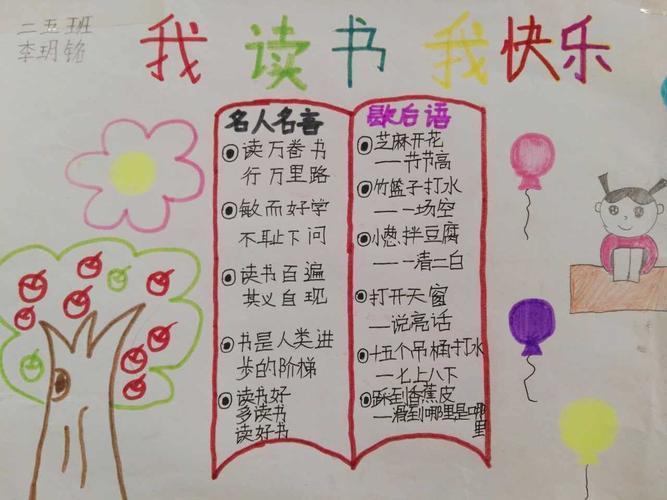 二五班
李玥铭
我读书我快乐
名人名言
读万卷书
行万里路
敏而好学
不耻下问
读书百遍
其义自现
书是人类进
步的阶梯
读书好
多读书
读好书
歇后语
芝麻开花
一节节高
竹篮子打水
一一场空
小葱拌豆腐
一清二白
打开天窗
一说亮话
十五个吊桶打水
一七上八下
踩到香蕉皮
一滑到哪里是哪
里